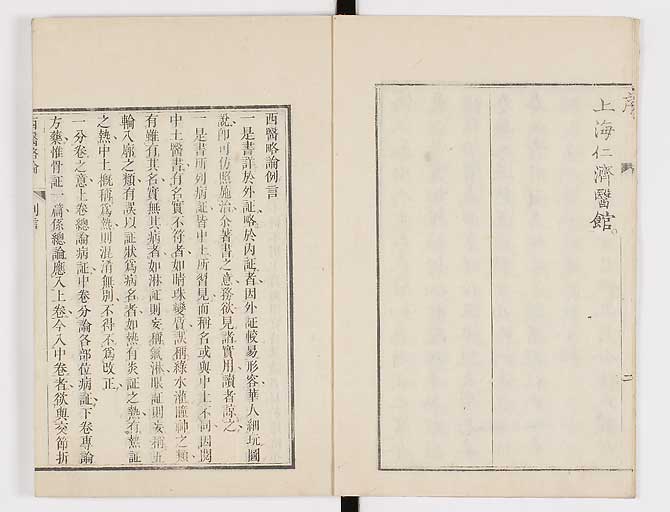 序
上海仁濟醫館。
二
西醫略論例言
一是書詳於外証略於內証者因外証較易形容華人細玩圖
說卽可仿照施治余著書之意務欲見諸實用讀者諒之
一是書所列病証皆中土所習見而稱名或與中土不同因閱
中土醫書有名實不符者如睛珠變質誤稱綠水灌瞳神之類
有雖有其名實無其病者如淋証則妄稱氣淋眼証則妄稱五
輪八廓之類有誤以証狀爲病名者如熱有炎証之熱有熱証
之熱中土槪稱爲熱則混淆無別不得不爲改正
一分卷之意上卷總論病証中卷分論各部位病証下卷專論
方藥惟骨証一篇係總論應入上卷今入中卷者欲與接節折
西醫略論
例言